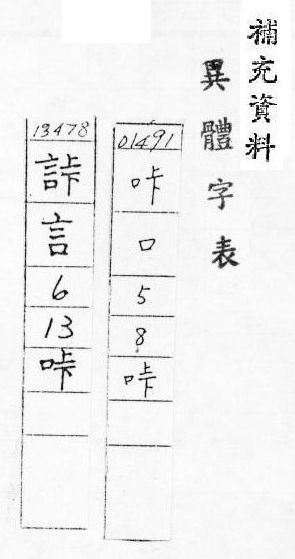 補充資料
異體字表
01491
咔
口
5
8
咔
13478
言
6
13
咔